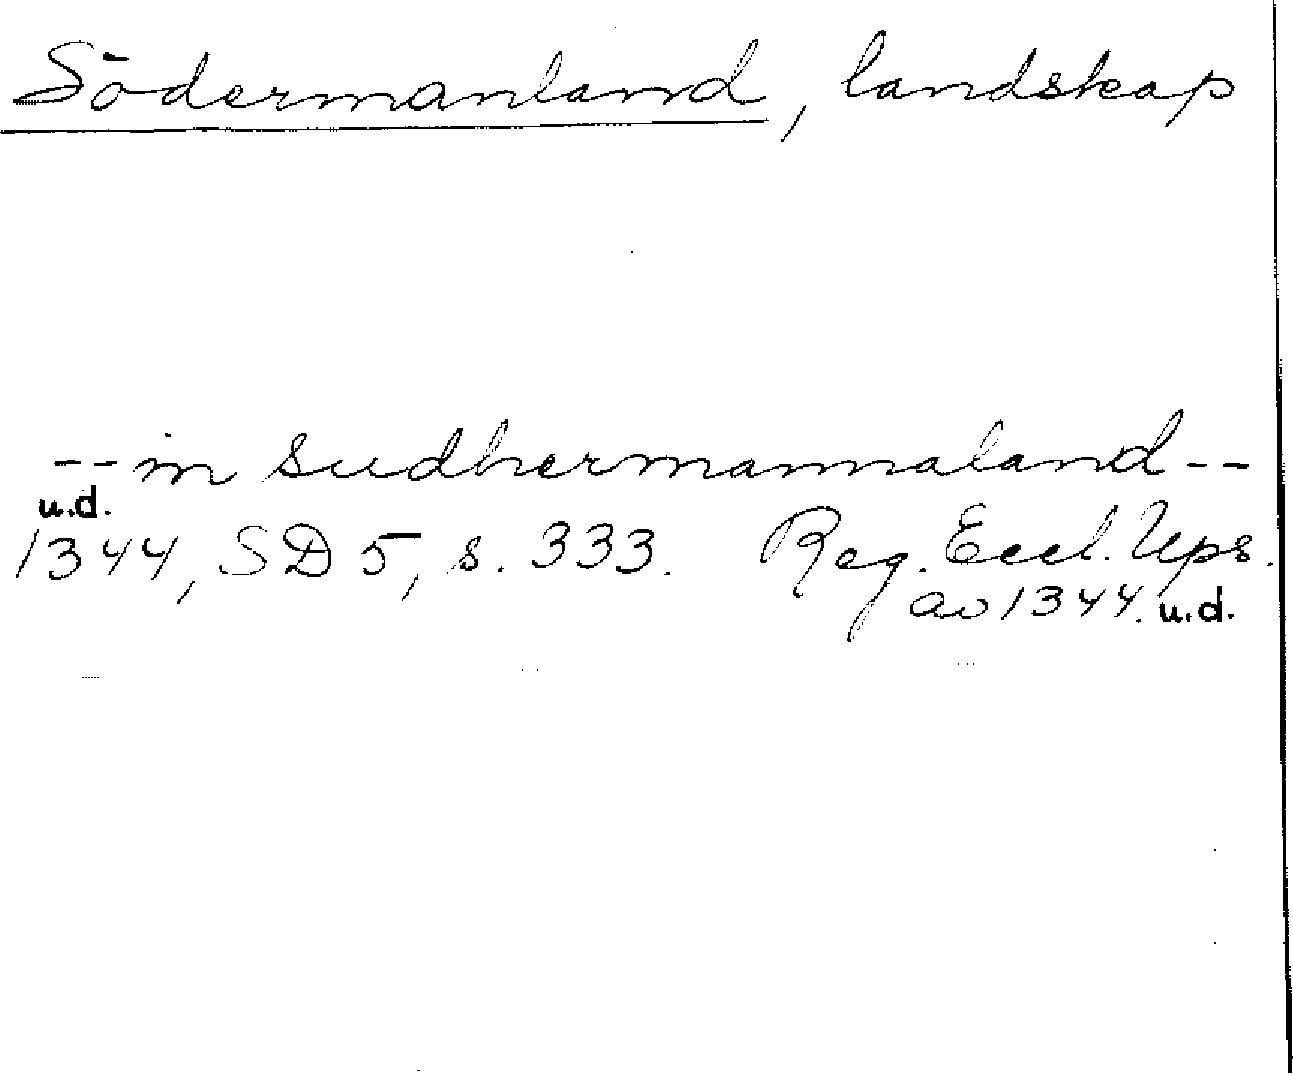 Södermanland, landskap
--in sudhermannaland--
u.d.
1344, SD 5, s. 333. Reg. Eccl. Ups.
av 1344. u.d.